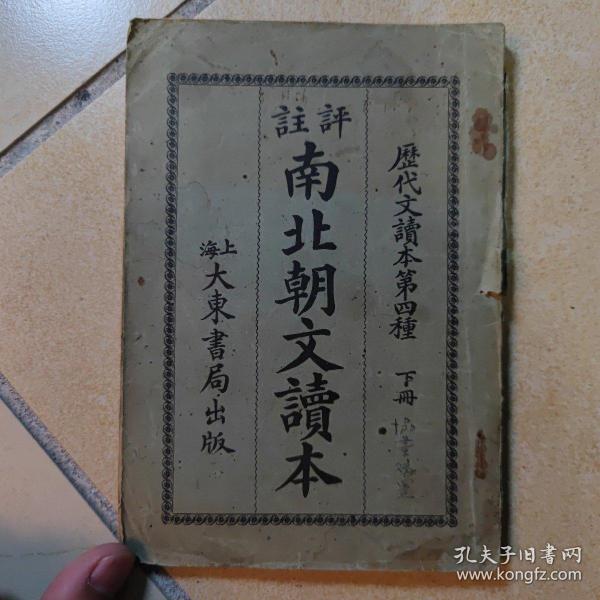 歷代文讀本第四種 下冊
評註
南北朝文讀本
上海
大東書局出版
孔夫子旧书网
www.kongfz.com